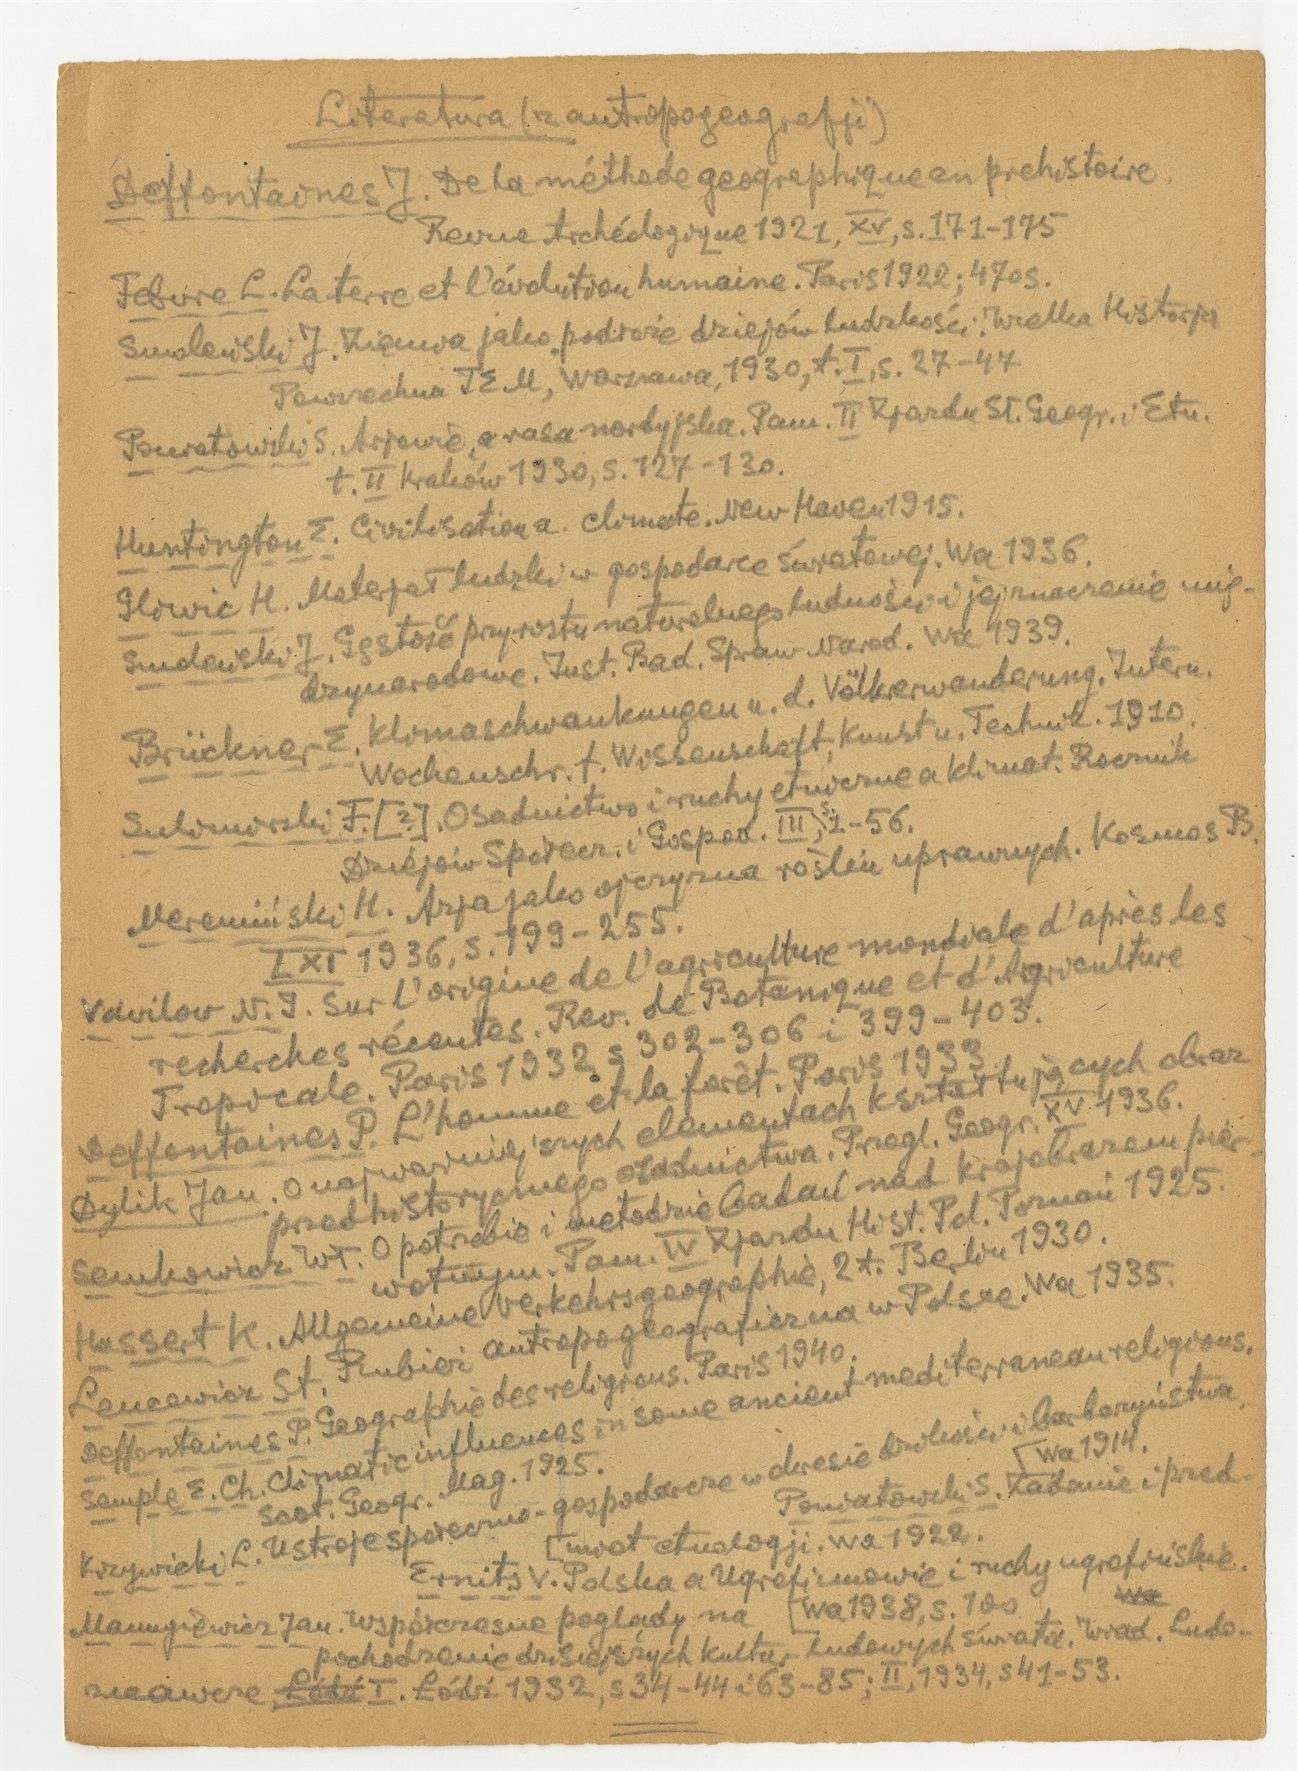 Literatura (z antropogeografji)
Deffontaines J. De la méthode geographique en prehistoire.
Revue Archéologique 1921, XV, s. 171-175
Febvre L. La terre et l'évolution humaine. Paris 1922; 470 s.
Smoleński J. Ziemia jako podłoże dziejów ludzkości. Wielka Historja
Powszechna TEM, Warszawa, 1930, t. I, s. 27-47
Poniatowski S. Arjowie, a rasa nordyjska. Pam. II Zjazdu Sł. Geogr. i Etn.
t. II Kraków 1930, s. 127-130.
Huntington E. Civilisation a. climate. New Haven 1915.
Gliwic H. Materjał ludzki w gospodarce światowej. Wa 1936.
Smoleński J. Gęstość przyrostu naturalnego ludności i jej znaczenie mię-
dzynarodowe. Inst. Bad. Spraw Narod. Wa 1939.
Brückner E. Klimaschwankungen u. d. Völkerwanderung. Intern.
Wochenschr. f. Wissenschaft, Kunst u. Technik. 1910.
Sulimirski F. [?]. Osadnictwo i ruchy etniczne a klimat. Rocznik
Dziejów Społecz. i Gospod. III, s. 1-56.
Nieremiński H. Azja jako ojczyzna roślin uprawnych. Kosmos B.
LXI 1936, s. 199-255.
Vavilov N. I. Sur l'origine de l'agriculture mondiale d'après les
recherches récentes. Rev. de Botanique et d'Agriculture
Tropicale. Paris 1932 s 302-306 i 399-403.
Deffontaines P. L'homme et la forêt. Paris 1933
Dylik Jan. O najważniejszych elementach kształtujących obraz
przedhistorycznego osadnictwa. Przegl. Geogr. XV 1936.
Semkowicz Wł. O potrzebie i metodzie badań nad krajobrazem pier-
wotnym. Pam. IV Zjazdu Hist. Pol. Poznań 1925.
Hassert K. Allgemeine Verkehrsgeographie, 2 t. Berlin 1930.
Lencewicz St. Rubieri antropogeograficzna w Polsce. Wa 1935.
Deffontaines P. Geographie des religions. Paris 1940.
Semple E. Ch. Climatic influences in some ancient mediterranean religions.
Scot. Geogr. Mag. 1925.
Krzywicki L. Ustroje społeczno-gospodarcze w okresie dzikości i barbarzyństwa.
[Wa 1914.
Poniatowski S. Zadanie i przed-
[miot etnologji. Wa 1922.
Ernits V. Polska a Ugrofinnowie i ruchy ugrofińskie.
[Wa 1938, s. 100
Wa
Manugiewicz Jan. Współczesne poglądy na
pochodzenie dzisiejszych kultur ludowych świata. Wiad. Ludo-
znawcze Łódź I. Łódź 1932, s 34-44 i 63-85; II, 1934, s 41-53.